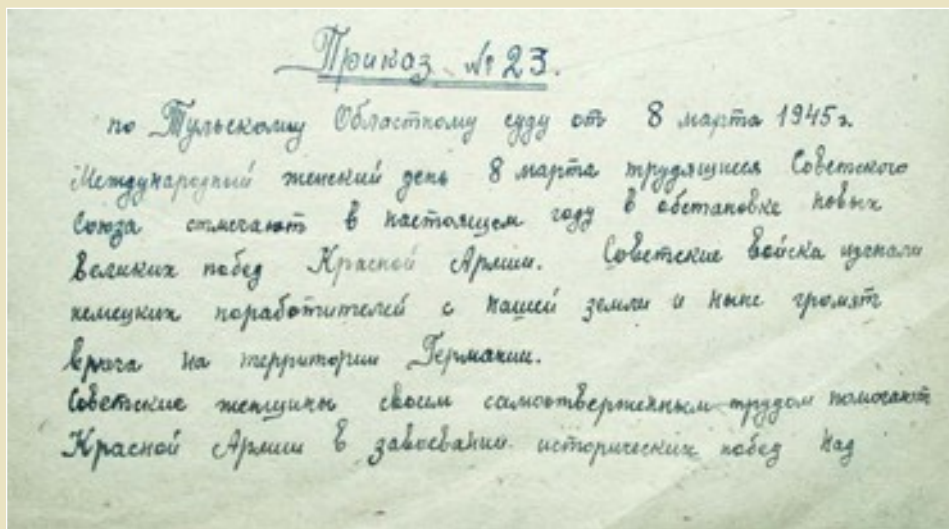 Приказ № 23.
по Тульскому Областному суду от 8 марта 1945 г.
Международный женский день 8 марта трудящиеся Советского
Союза отмечают в настоящем году в обстановке новых
великих побед Красной Армии. Советские войска изгнали
немецких поработителей с нашей земли и ныне громят
врага на территории Германии.
Советские женщины своим самоотверженным трудом помогают
Красной Армии в завоевании исторических побед над